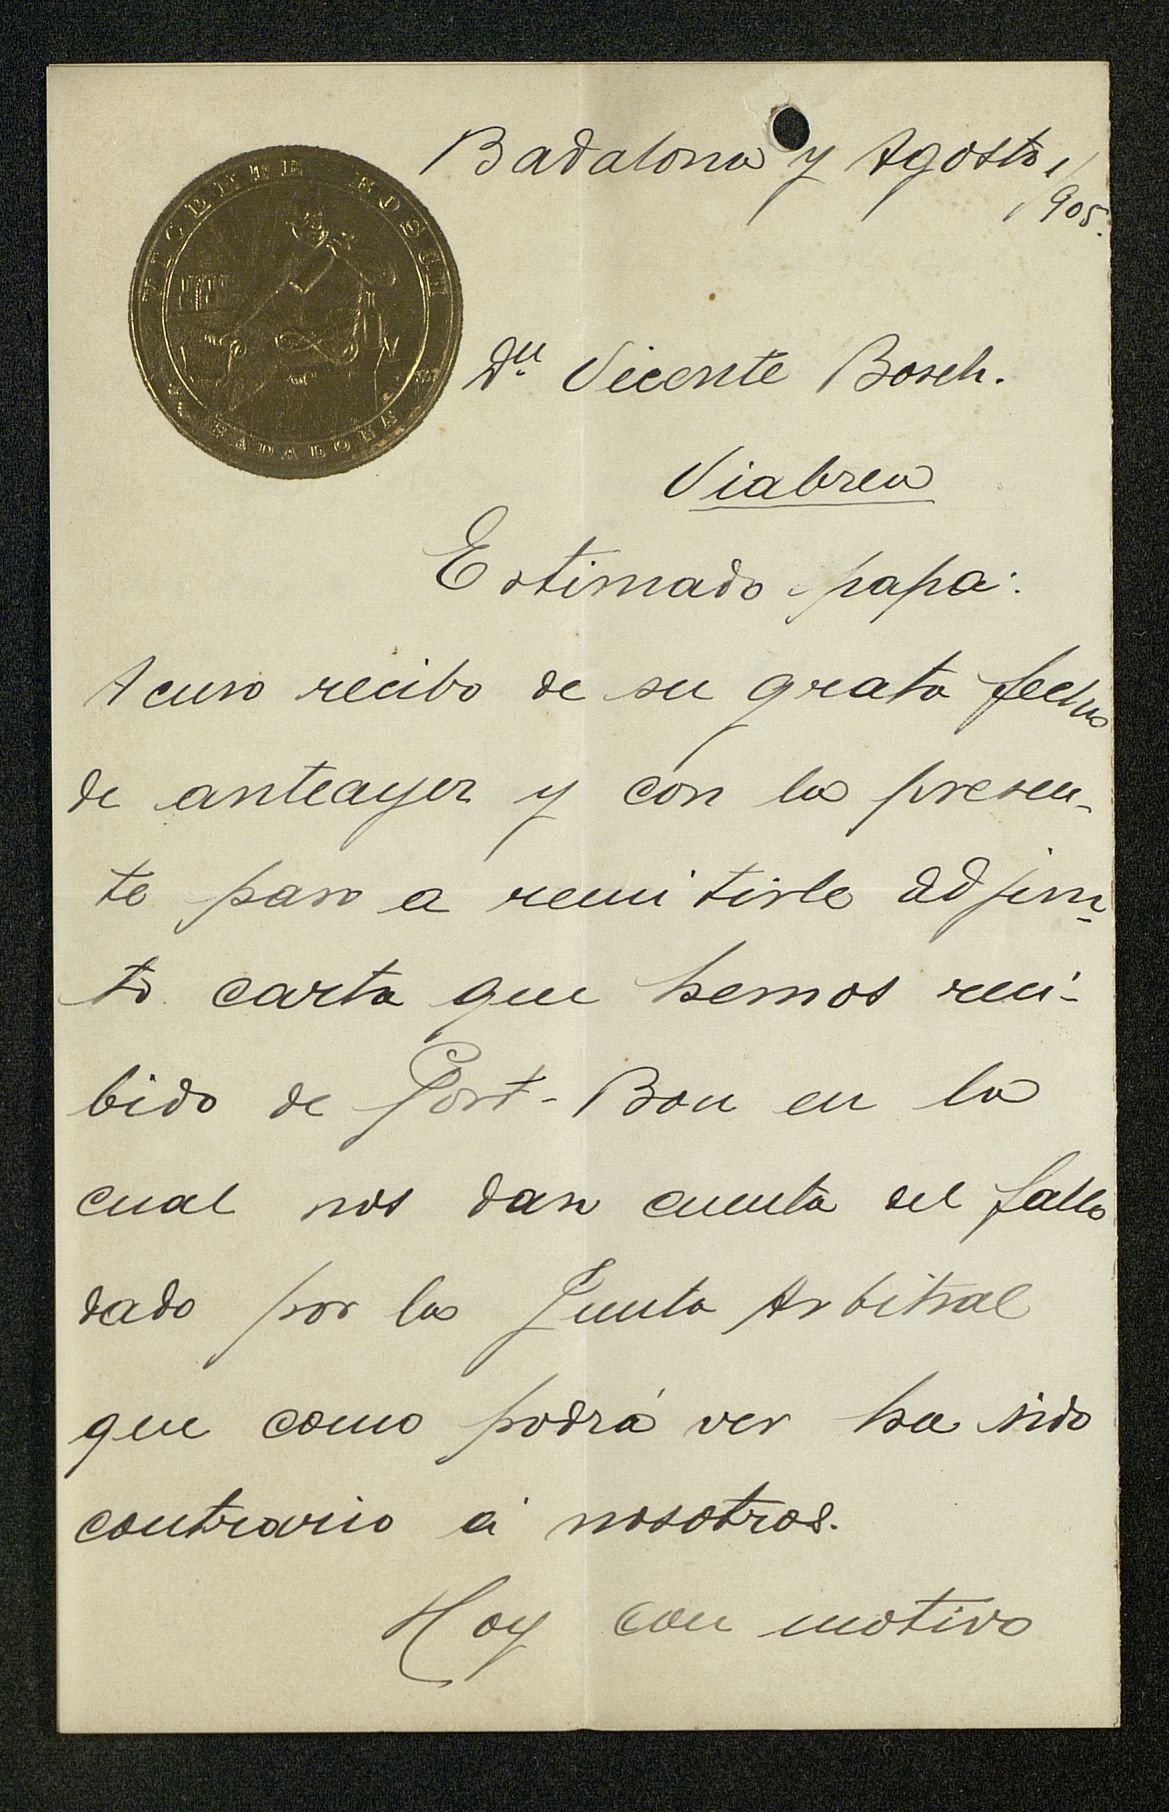 VICENTE BOSCH
BADALONA
Badalona y Agosto 1/905.
Dn Vicente Bosch.
Viabrea
Estimado papa:
Acuso recibo de su grata fecha
de anteayer y con la presen-
te paso a remitirle adjun-
to carta que hemos reci-
bido de Port-Bou en la
cual nos dan cuenta del fallo
dado por la Junta Arbitral
que como podrá ver ha sido
contrario á nosotros.
Hoy con motivo